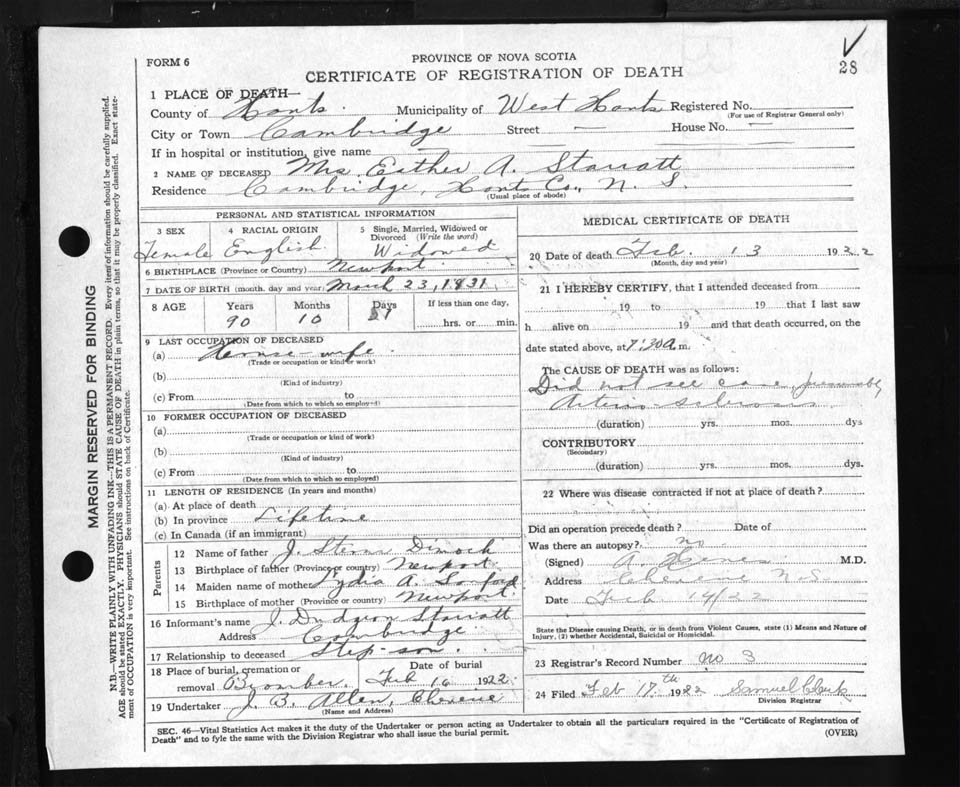 28
FORM 6
PROVINCE OF NOVA SCOTIA
CERTIFICATE OF REGISTRATION OF DEATH
1 PLACE OF DEATH—
County of Hants. Municipality of West Hants Registered No.
(For use of Registrar General only)
City or Town Cambridge Street — House No. —
If in hospital or institution, give name —
2 NAME OF DECEASED Mrs Esther A. Starratt
Residence Cambridge, Hants Co., N. S.
(Usual place of abode)
PERSONAL AND STATISTICAL INFORMATION
3 SEX
Female
4 RACIAL ORIGIN
English
5 Single, Married, Widowed or
Divorced (Write the word)
Widowed
6 BIRTHPLACE (Province or Country) Newport
7 DATE OF BIRTH (month, day and year) March 23, 1831
8 AGE Years Months Days If less than one day,
90 10 hrs. or min.
9 LAST OCCUPATION OF DECEASED
(a) House-wife
(Trade or occupation or kind of work)
(b)
(Kind of industry)
(c) From to
(Date from which to which so employed)
10 FORMER OCCUPATION OF DECEASED
(a)
(Trade or occupation or kind of work)
(b)
(Kind of industry)
(c) From to
(Date from which to which so employed)
11 LENGTH OF RESIDENCE (In years and months)
(a) At place of death
(b) In province Lifetime
(c) In Canada (if an immigrant)
Parents
12 Name of father J. Sterns Dimock
13 Birthplace of father (Province or country) Newport
14 Maiden name of mother Lydia A. Sanford
15 Birthplace of mother (Province or country) Newport
16 Informant's name J. Dudgeon Starratt
Address Cambridge
17 Relationship to deceased Step-son
18 Place of burial, cremation or Date of burial
removal Feb 16 1922
19 Undertaker J. B. Allen, Cheverie
(Name and Address)
MEDICAL CERTIFICATE OF DEATH
20 Date of death Feb. 13 1922
(Month, day and year)
21 I HEREBY CERTIFY, that I attended deceased from
19 to 19 that I last saw
h alive on 19 and that death occurred, on the
date stated above, at 7:30 a.m.
The CAUSE OF DEATH was as follows:
Did not see case, presumably
Arterio-sclerosis
(duration) yrs. mos. dys
CONTRIBUTORY
(Secondary)
(duration) yrs. mos. dys.
22 Where was disease contracted if not at place of death?
Did an operation precede death? Date of
Was there an autopsy? no
(Signed) A. M.D.
Address Cheverie N.S.
Date Feb 14/22
State the Disease causing Death, or in death from Violent Causes, state (1) Means and Nature of
Injury, (2) whether Accidental, Suicidal or Homicidal.
23 Registrar's Record Number No 3
24 Filed Feb 17th 1922 Samuel Clark
Division Registrar
SEC. 46—Vital Statistics Act makes it the duty of the Undertaker or person acting as Undertaker to obtain all the particulars required in the "Certificate of Registration of
Death" and to fyle the same with the Division Registrar who shall issue the burial permit. (OVER)
MARGIN RESERVED FOR BINDING
N.B.—WRITE PLAINLY WITH UNFADING INK—THIS IS A PERMANENT RECORD. Every item of information should be carefully supplied.
AGE should be stated EXACTLY. PHYSICIANS should STATE CAUSE OF DEATH in plain terms, so that it may be properly classified. Exact state-
ment of OCCUPATION is very important. See instructions on back of Certificate.